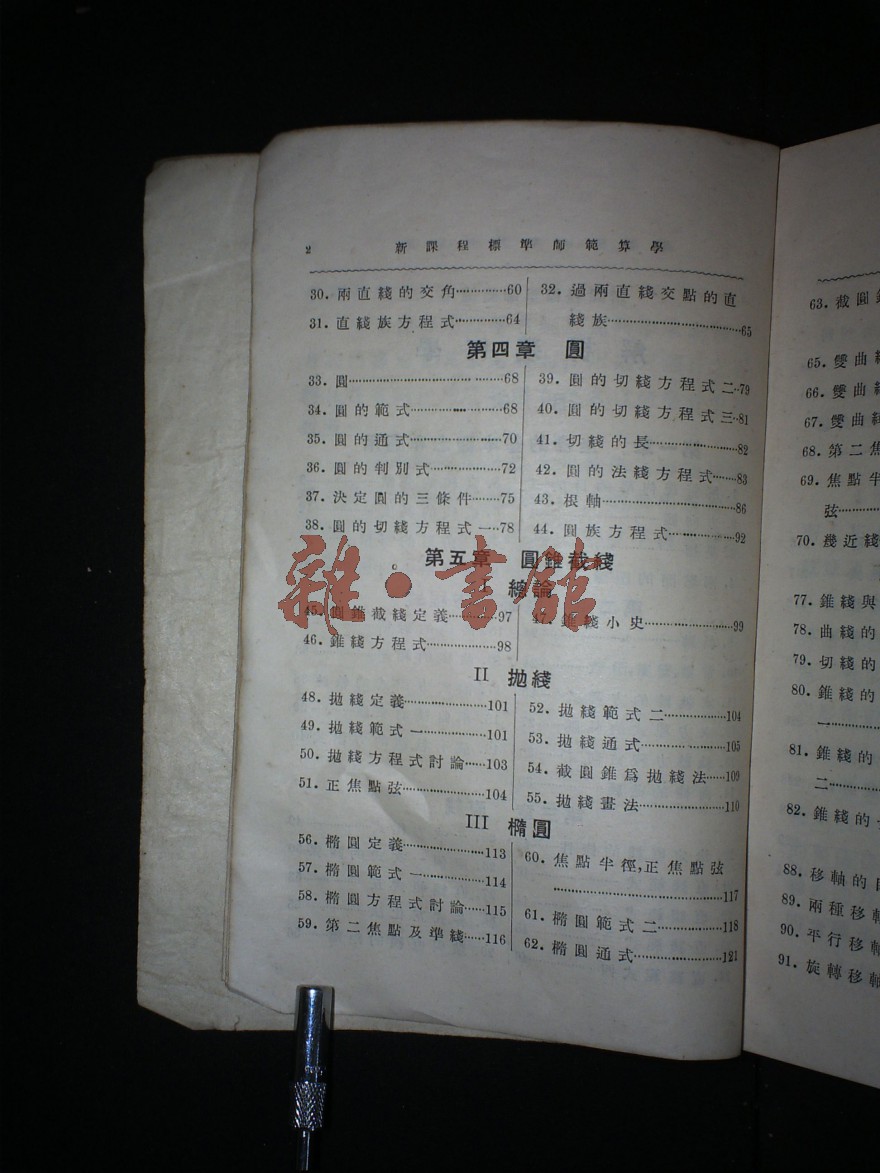 2 新課程標準師範算學
30. 兩直綫的交角…………60
31. 直綫族方程式…………64
32. 過兩直綫交點的直
綫族……………………65
第四章 圓
33. 圓……………………68
34. 圓的範式………………68
35. 圓的通式………………70
36. 圓的判別式……………72
37. 決定圓的三條件………75
38. 圓的切綫方程式一…78
39. 圓的切綫方程式二…79
40. 圓的切綫方程式三…81
41. 切綫的長………………82
42. 圓的法綫方程式………83
43. 根軸……………………86
44. 圓族方程式……………92
第五章 圓錐截綫
I 總論
45. 圓錐截綫定義…………97
46. 錐綫方程式……………98
47. 錐綫小史………………99
II 拋綫
48. 拋綫定義………………101
49. 拋綫範式一……………101
50. 拋綫方程式討論……103
51. 正焦點弦………………104
52. 拋綫範式二……………104
53. 拋綫通式………………105
54. 截圓錐爲拋綫法……109
55. 拋綫畫法………………110
III 橢圓
56. 橢圓定義………………113
57. 橢圓範式一……………114
58. 橢圓方程式討論……115
59. 第二焦點及準綫……116
60. 焦點半徑,正焦點弦
……………………………117
61. 橢圓範式二……………118
62. 橢圓通式………………121
63. 截圓
65. 雙曲
66. 雙曲
67. 雙曲
68. 第二焦
69. 焦點半
弦………
70. 幾近綫
77. 錐綫與
78. 曲綫的
79. 切綫的
80. 錐綫的
一………
81. 錐綫的
二………
82. 錐綫的
88. 移軸的
89. 兩種移
90. 平行移
91. 旋轉移軸
雜·書館